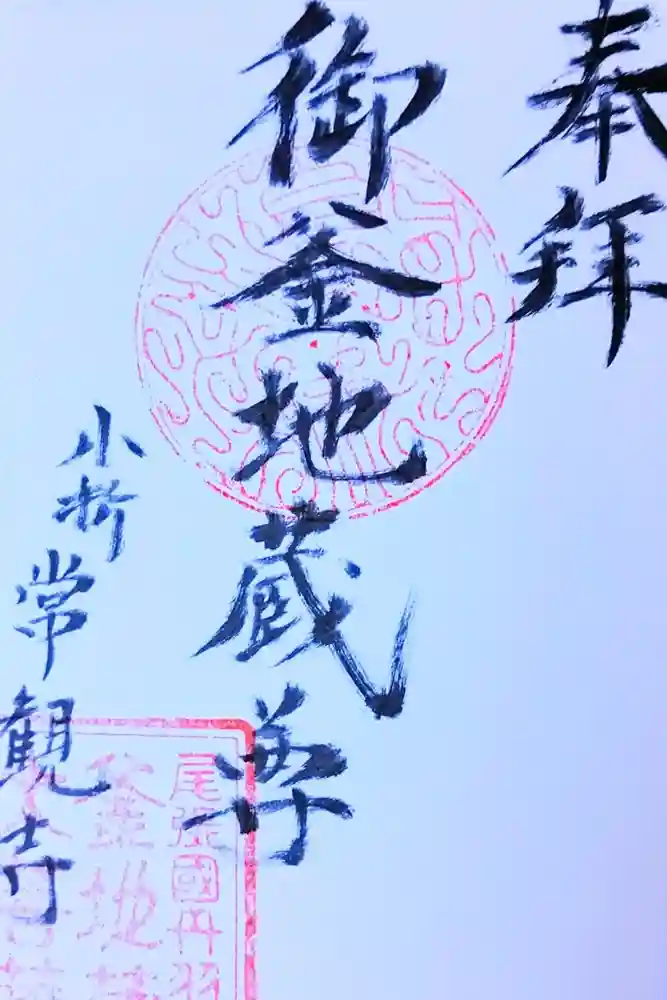 奉拝
御釜地蔵尊
小折
常観寺
尾張國丹羽
釜地蔵